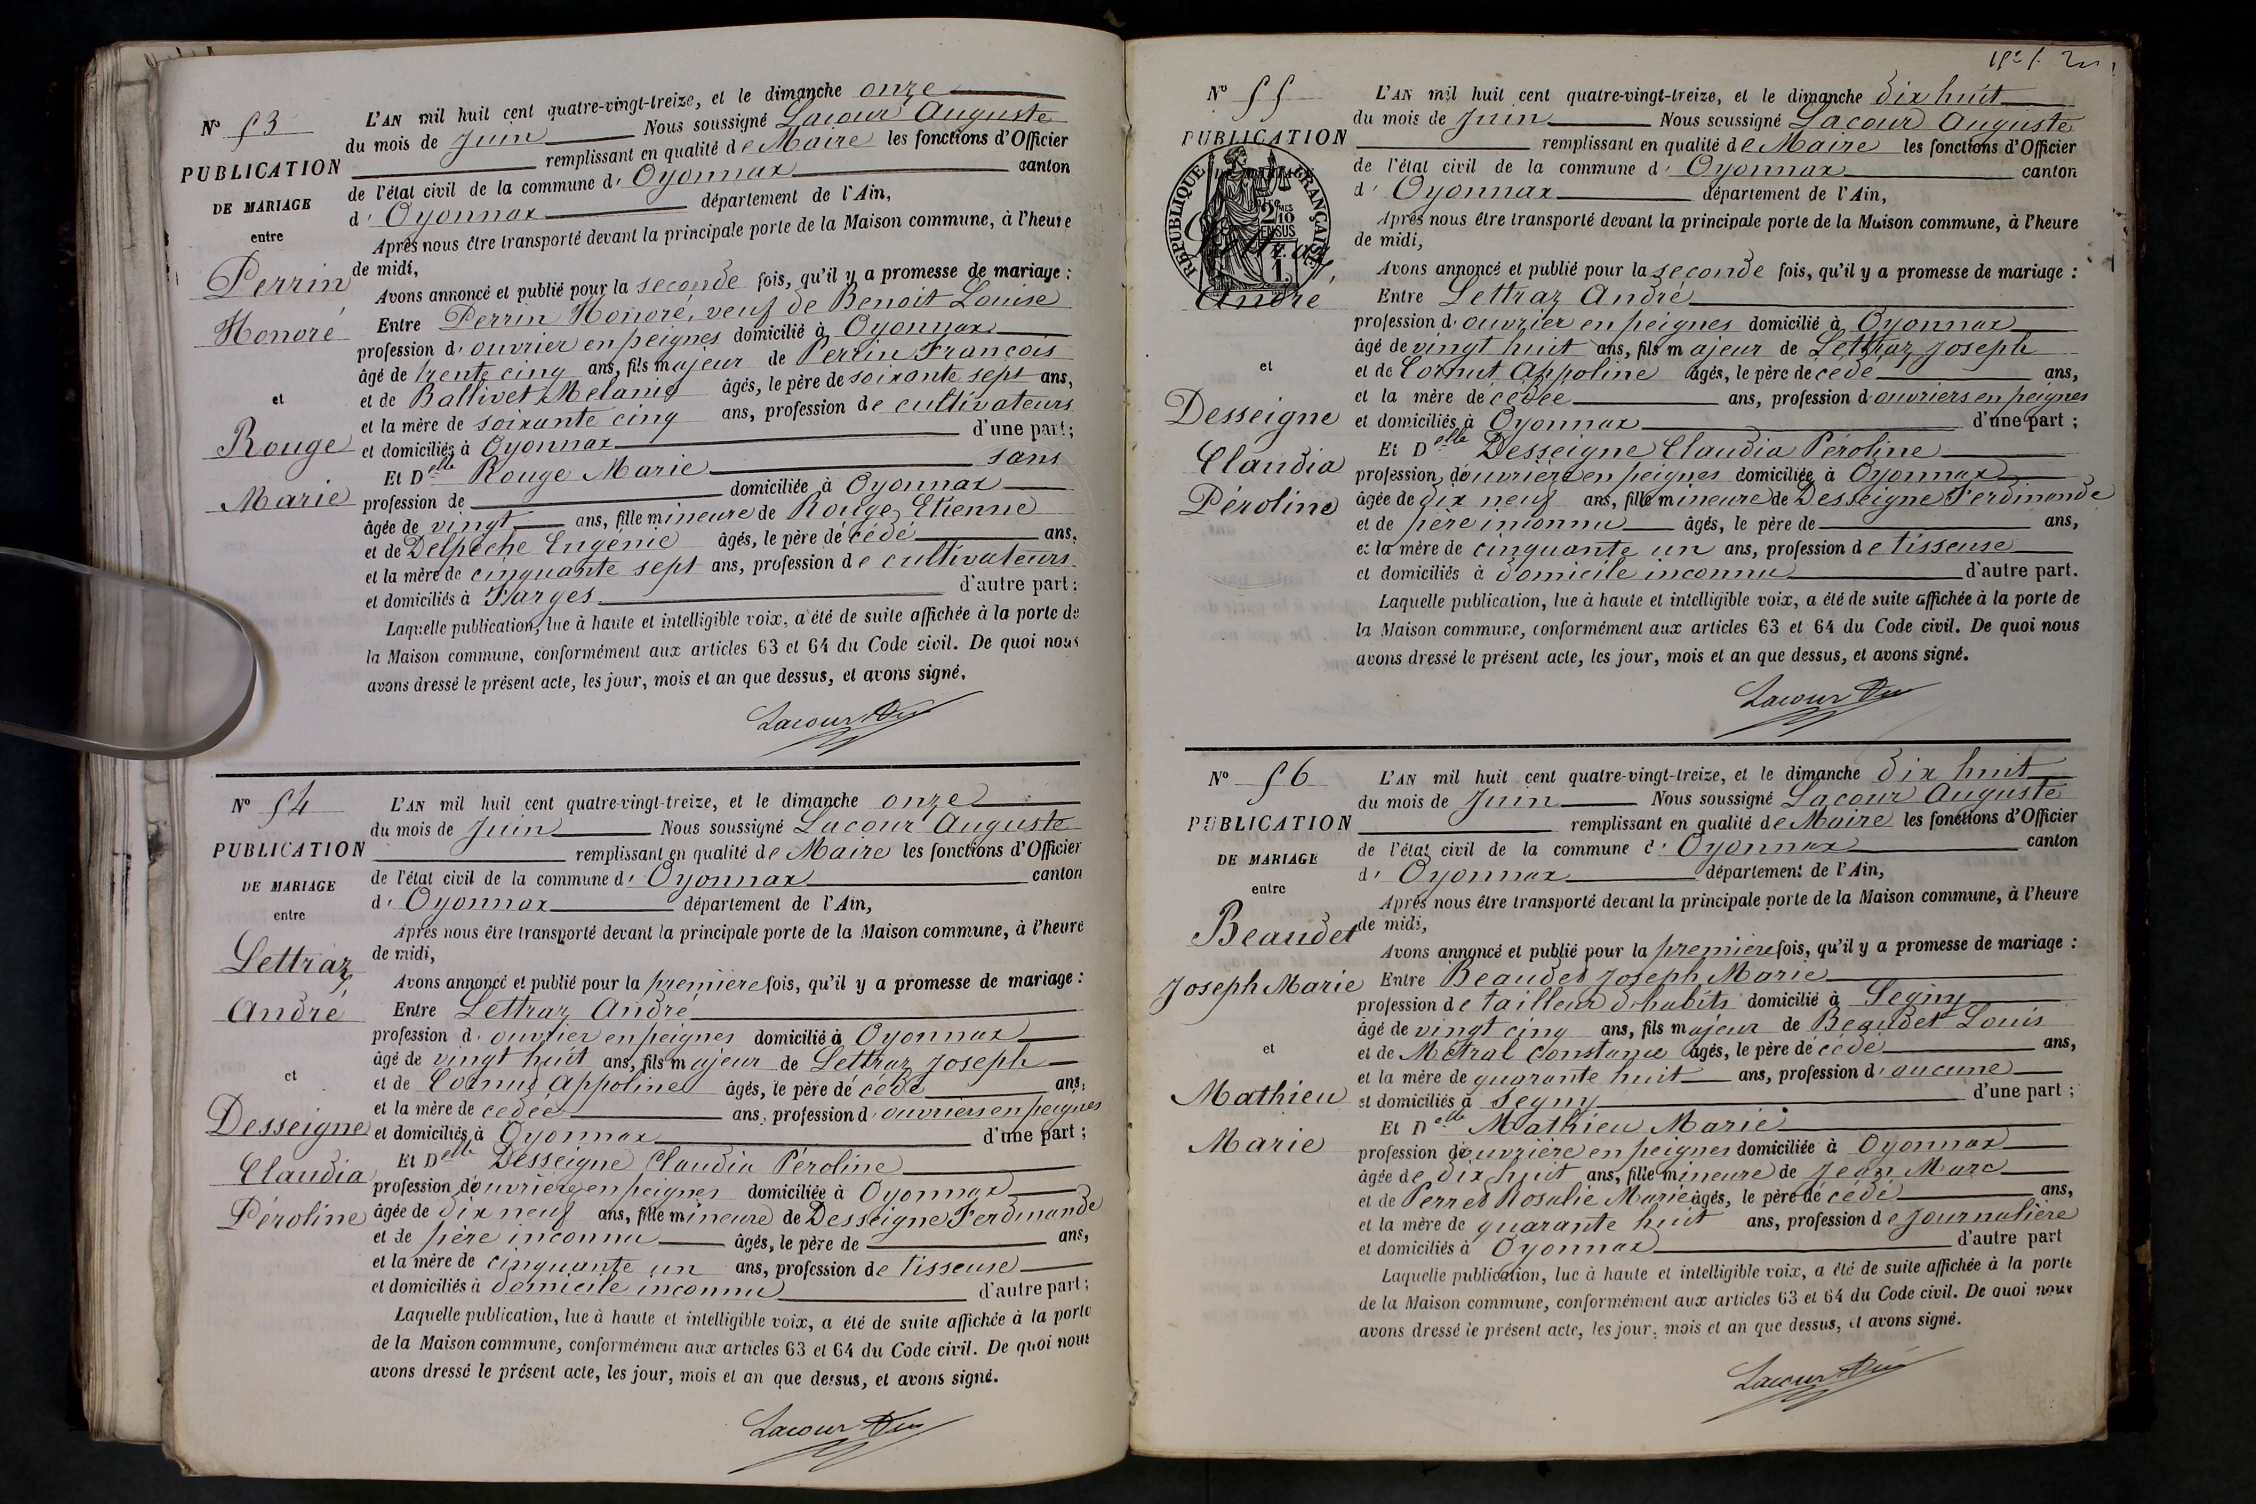 N° 53
PUBLICATION
DE MARIAGE
entre
Perrin
Honoré
et
Rouge
Marie
L'AN mil huit cent quatre-vingt-treize, et le dimanche onze
du mois de Juin Nous soussigné Lacour Auguste
remplissant en qualité de Maire les fonctions d'Officier
de l'état civil de la commune d' Oyonnax canton
d' Oyonnax département de l'Ain,
Après nous être transporté devant la principale porte de la Maison commune, à l'heure
de midi,
Avons annoncé et publié pour la seconde fois, qu'il y a promesse de mariage :
Entre Perrin Honoré, veuf de Benoit Louise
profession d'ouvrier en peignes domicilié à Oyonnax
âgé de trente cinq ans, fils majeur de Perrin François
et de Ballivet Melanie âgés, le père de soixante sept ans,
et la mère de soixante cinq ans, profession de cultivateurs
et domiciliés à Oyonnax d'une part;
Et Delle Rouge Marie sans
profession de domiciliée à Oyonnax
âgée de vingt ans, fille mineure de Rouge Etienne
et de Delpeche Eugenie âgés, le père décédé ans,
et la mère de cinquante sept ans, profession de cultivateurs
et domiciliés à Farges d'autre part;
Laquelle publication, lue à haute et intelligible voix, a été de suite affichée à la porte de
la Maison commune, conformément aux articles 63 et 64 du Code civil. De quoi nous
avons dressé le présent acte, les jour, mois et an que dessus, et avons signé.
Lacour
N° 54
PUBLICATION
DE MARIAGE
entre
Lettraz
André
et
Desseigne
Claudia
Péroline
L'AN mil huit cent quatre-vingt-treize, et le dimanche onze
du mois de Juin Nous soussigné Lacour Auguste
remplissant en qualité de Maire les fonctions d'Officier
de l'état civil de la commune d' Oyonnax canton
d' Oyonnax département de l'Ain,
Après nous être transporté devant la principale porte de la Maison commune, à l'heure
de midi,
Avons annoncé et publié pour la première fois, qu'il y a promesse de mariage :
Entre Lettraz André
profession d'ouvrier en peignes domicilié à Oyonnax
âgé de vingt huit ans, fils majeur de Lettraz Joseph
et de Cornut Appoline âgés, le père décédé ans,
et la mère de cédée ans, profession d'ouvriers en peignes
et domiciliés à Oyonnax d'une part;
Et Delle Desseigne Claudia Péroline
profession d'ouvrière en peignes domiciliée à Oyonnax
âgée de dix neuf ans, fille mineure de Desseigne Ferdinande
et de père inconnu âgés, le père de ans,
et la mère de cinquante un ans, profession de tisseuse
et domiciliés à domicile inconnu d'autre part;
Laquelle publication, lue à haute et intelligible voix, a été de suite affichée à la porte
de la Maison commune, conformément aux articles 63 et 64 du Code civil. De quoi nous
avons dressé le présent acte, les jour, mois et an que dessus, et avons signé.
Lacour
N° 55
PUBLICATION
RÉPUBLIQUE FRANÇAISE
2/10 MES
EN SUS
André
et
Desseigne
Claudia
Péroline
L'AN mil huit cent quatre-vingt-treize, et le dimanche dix huit
du mois de Juin Nous soussigné Lacour Auguste
remplissant en qualité de Maire les fonctions d'Officier
de l'état civil de la commune d' Oyonnax canton
d' Oyonnax département de l'Ain,
Après nous être transporté devant la principale porte de la Maison commune, à l'heure
de midi,
Avons annoncé et publié pour la seconde fois, qu'il y a promesse de mariage :
Entre Lettraz André
profession d'ouvrier en peignes domicilié à Oyonnax
âgé de vingt huit ans, fils majeur de Lettraz Joseph
et de Cornut Appoline âgés, le père decédé ans,
et la mère décédée ans, profession d'ouvriers en peignes
et domiciliés à Oyonnax d'une part;
Et Delle Desseigne Claudia Péroline
profession d'ouvrière en peignes domiciliée à Oyonnax
âgée de dix neuf ans, fille mineure de Desseigne Ferdinande
et de père inconnu âgés, le père de ans,
et la mère de cinquante un ans, profession de tisseuse
et domiciliés à domicile inconnu d'autre part.
Laquelle publication, lue à haute et intelligible voix, a été de suite affichée à la porte de
la Maison commune, conformément aux articles 63 et 64 du Code civil. De quoi nous
avons dressé le présent acte, les jour, mois et an que dessus, et avons signé.
Lacour
N° 56
PUBLICATION
DE MARIAGE
entre
Beaudet
Joseph Marie
et
Mathieu
Marie
L'AN mil huit cent quatre-vingt-treize, et le dimanche dix huit
du mois de Juin Nous soussigné Lacour Auguste
remplissant en qualité de Maire les fonctions d'Officier
de l'état civil de la commune d' Oyonnax canton
d' Oyonnax département de l'Ain,
Après nous être transporté devant la principale porte de la Maison commune, à l'heure
de midi,
Avons annoncé et publié pour la première fois, qu'il y a promesse de mariage :
Entre Beaudet Joseph Marie
profession de tailleur d'habits domicilié à Segny
âgé de vingt cinq ans, fils majeur de Beaudet Louis
et de Métral Constance âgés, le père décédé ans,
et la mère de quarante huit ans, profession d'aucune
et domiciliés à Segny d'une part;
Et Delle Mathieu Marie
profession d'ouvrière en peignes domiciliée à Oyonnax
âgée de dix huit ans, fille mineure de Jean Marc
et de Perret Rosalie Marie âgés, le père décédé ans,
et la mère de quarante huit ans, profession de journalière
et domiciliés à Oyonnax d'autre part
Laquelle publication, lue à haute et intelligible voix, a été de suite affichée à la porte
de la Maison commune, conformément aux articles 63 et 64 du Code civil. De quoi nous
avons dressé le présent acte, les jour, mois et an que dessus, et avons signé.
Lacour